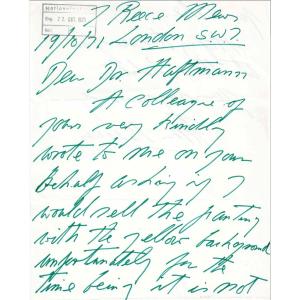 Nationalg
Eing. 22. OKT. 1971
7 Reece Mews
19/10/71 London S.W.7.
Dear Dr. Haftmann
A colleague of
yours very kindly
wrote to me on your
behalf asking if I
would sell the painting
with the yellow background
unfortunately for the
time being it is not